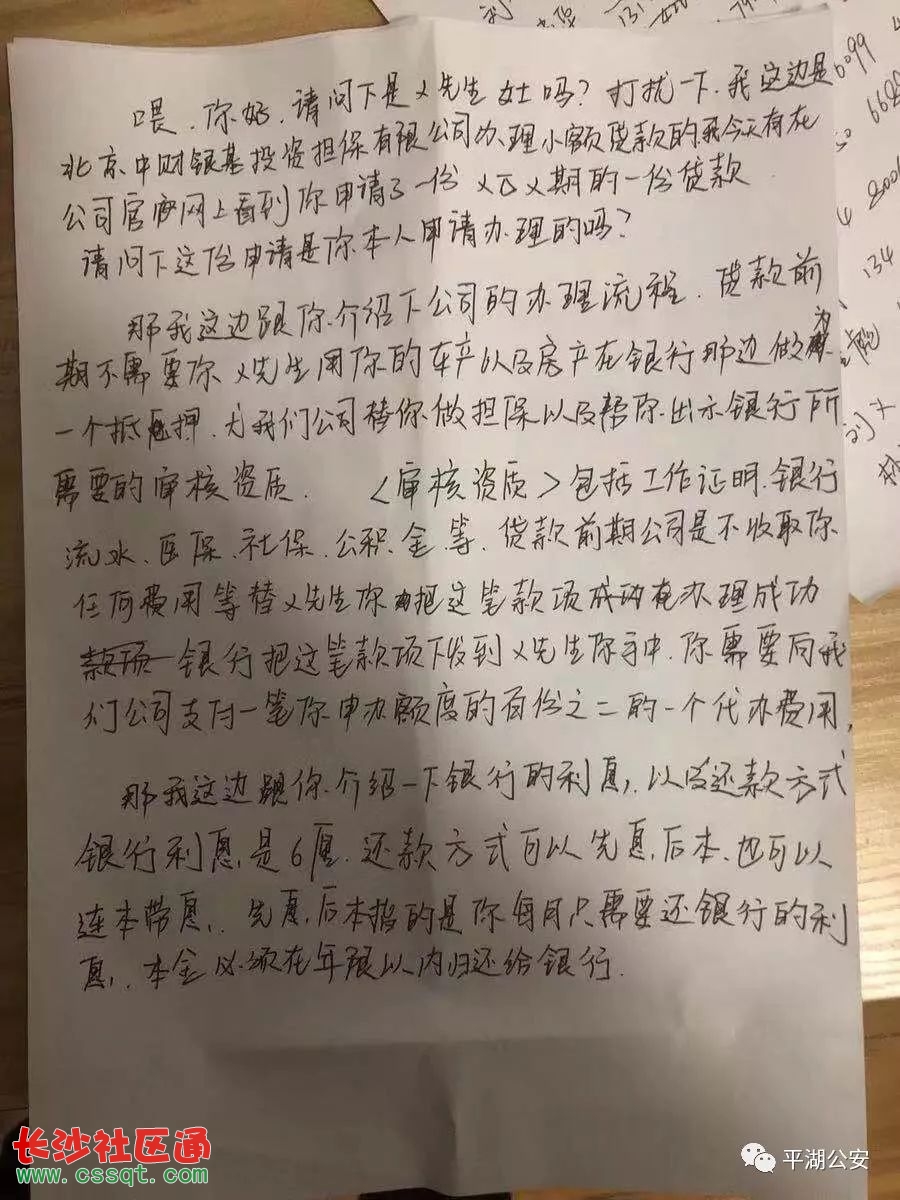 喂、你好、请问下是乂先生女士吗?打扰一下、我这边是
北京中财银基投资担保有限公司办理小额贷款的我今天有在
公司官网上看到你申请了一份乂万乂期的一份贷款
请问下这份申请是你本人申请办理的吗?
那我这边跟你介绍下公司的办理流程、贷款前
期不需要你乂先生用你的车产以及房产在银行那边做为
一个抵押、为我们公司替你做担保以及帮你出示银行所
需要的审核资质. <审核资质>包括工作证明、银行
流水、医保、社保、公积金、等、贷款前期公司是不收取你
任何费用等替乂先生你把这笔款项办理成功
款项 银行把这笔款项下发到乂先生你手中、你需要向我
们公司支付一笔你申办额度的百份之二的一个代办费用,
那我这边跟你介绍一下银行的利息、以及还款方式
银行利息是6厘、还款方式可以先息后本、也可以
连本带息、先息后本指的是你每月只需要还银行的利
息、本金必须在年限以内归还给银行.
131
6099
668
134
长沙社区通
www.cssqt.com
平湖公安